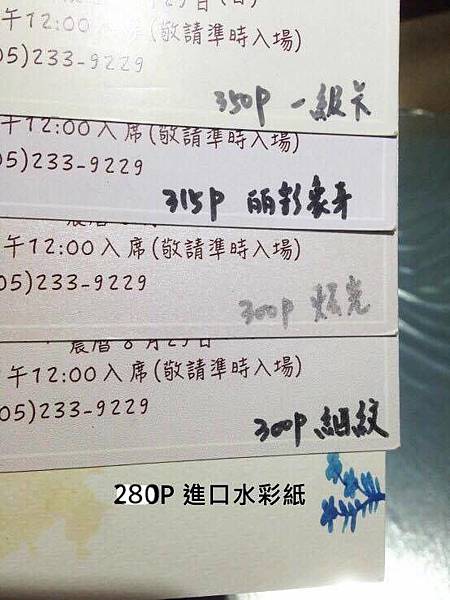 午12:00
(敬請準時入場)
05)233-9229
350P 一級卡
午12:00入席(敬請準時入場)
05)233-9229
315P 丽彩象牙
午12:00入席(敬請準時入場)
05)233-9229
300P 炫光
農曆8月29日
午12:00入席(敬請準時入場)
05)233-9229
300P 細紋
280P 進口水彩紙